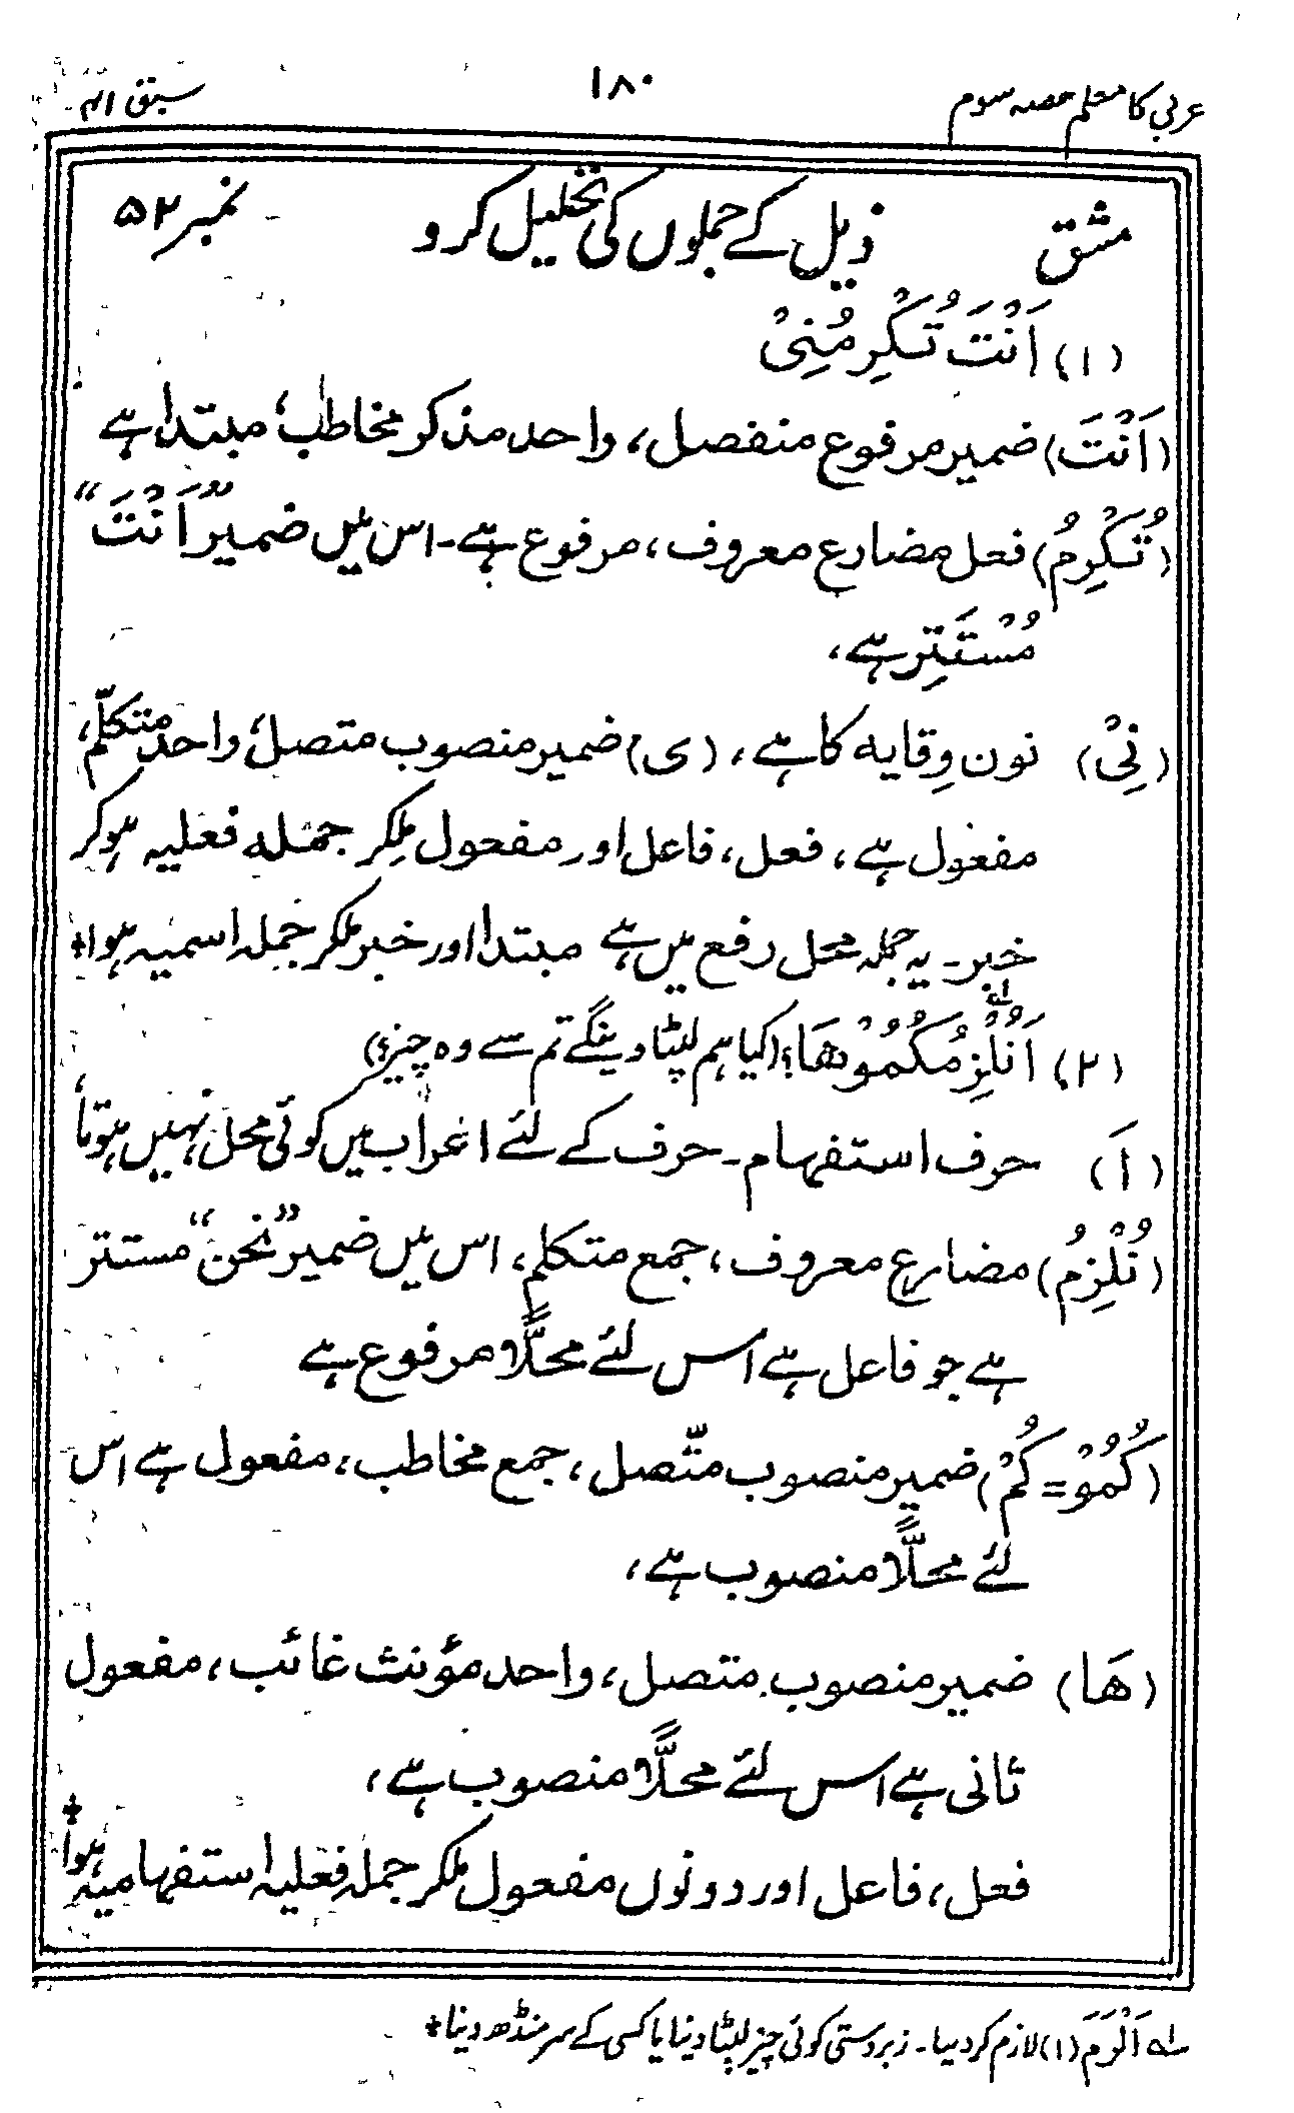 عربی کا معلم حصہ سوم
۱۸۰
سبق ۴۱
مشق
ذیل کے جملوں کی تحلیل کرو
نمبر ۵۲
(۱) اَنْتَ تُكْرِمُنِیْ
(اَنْتَ) ضمیر مرفوع منفصل، واحد مذکر مخاطب، مبتدا ہے
(تُكْرِمُ) فعل مضارع معروف، مرفوع ہے۔ اس میں ضمیر "اَنْتَ"
مُسْتَتِر ہے،
(نِیْ) نون وِقایہ کا ہے، (ی) ضمیر منصوب متصل، واحد متکلّم،
مفعول ہے، فعل، فاعل اور مفعول مِلکر جملہ فعلیہ ہوکر
خبر۔ یہ جملہ محل رفع میں ہے مبتدا اور خبر ملکر جملہ اسمیہ ہوا+
(۲) اَنُلْزِمُكُمُوْهَا؟ (کیا ہم لپٹا دینگے تم سے وہ چیز؟)
(اَ) حرف استفہام۔ حرف کے لئے اعراب میں کوئی محل نہیں ہوتا،
(نُلْزِمُ) مضارع معروف، جمع متکلم، اس میں ضمیر "نحن" مستتر
ہے جو فاعل ہے اس لئے محلًّا مرفوع ہے
(كُمُوْ = كُمْ) ضمیر منصوب متّصل، جمع مخاطب، مفعول ہے اس
لئے محلًّا منصوب ہے،
(هَا) ضمیر منصوب متصل، واحد مؤنث غائب، مفعول
ثانی ہے اس لئے محلًّا منصوب ہے،
فعل، فاعل اور دونوں مفعول ملکر جملہ فعلیہ استفہامیہ ہوا+
لہ اَلْزَمَ (۱) لازم کر دیا۔ زبردستی کوئی چیز لپٹا دینا یا کسی کے سر منڈھ دینا+